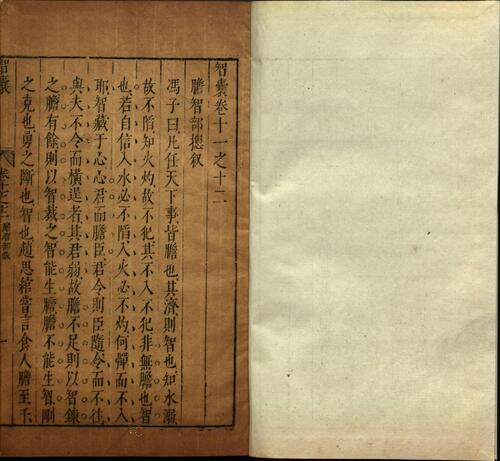 智囊卷十一之十二
膽智部總叙
馮子曰凡任天下事皆膽也其濟則智也知水溺
故不䧟知火灼故不犯其不入不犯非無膽也智
也若自信入水必不䧟入火必不灼何憚而不入
耶智藏于心心君而膽臣君令則臣隨令而不徃
與夫不令而橫逞者其君弱故膽不足則以智鍊
之膽有餘則以智裁之智能生膽膽不能生智剛
之克也勇之斷也智也趙思綰嘗言食人膽至千
智囊
膽智部叙
一